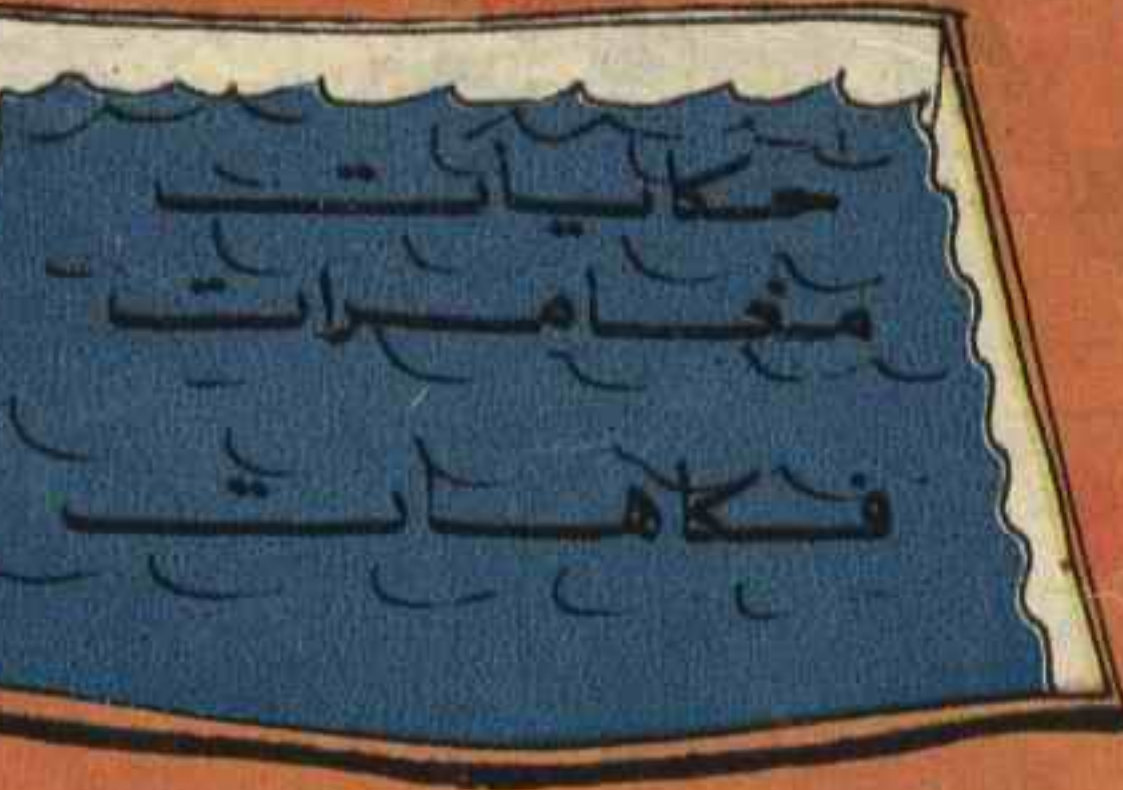 حكايات
مغامرات
فكاهات